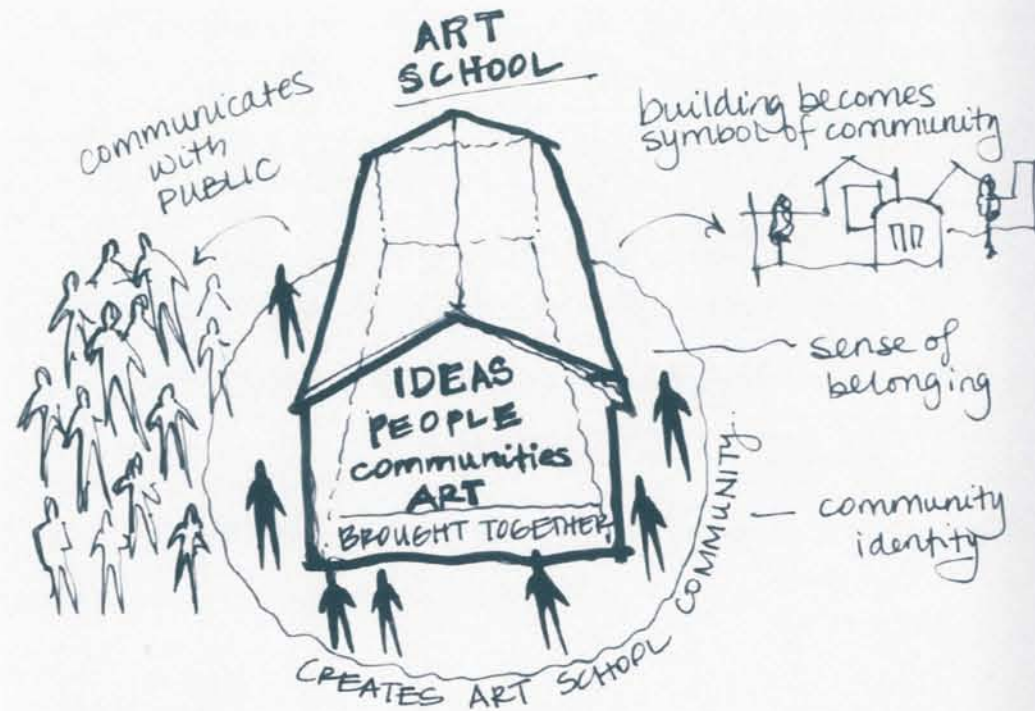 ART
SCHOOL
communicates
with
PUBLIC
building becomes
symbol of community
IDEAS
PEOPLE
communities
ART
BROUGHT TOGETHER
sense of
belonging
community
identity
CREATES ART SCHOOL COMMUNITY